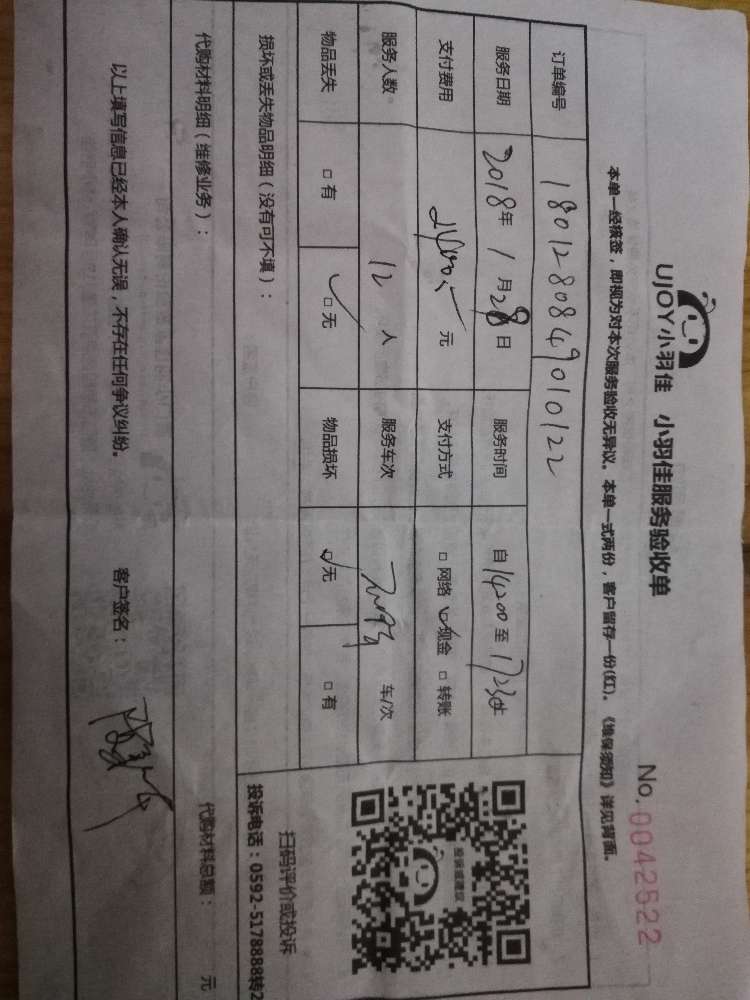 UJOY小羽佳 小羽佳服务验收单
No. 0042522
本单一经核签，即视为对本次服务验收无异议。本单一式两份，客户留存一份(红)。《维保须知》详见背面。
订单编号 1801280849010122
服务日期 2018年 1 月 28 日 服务时间 自 14:00 至 17:30
支付费用 元 支付方式 □ 网络 □ 现金 □ 转账
服务人数 12 人 服务车次 车/次
物品丢失 □ 有 □ 无 物品损坏 □ 无 □ 有
投诉或建议
扫码评价或投诉
投诉电话：0592-5178888转2
损坏或丢失物品明细（没有可不填）：
代购材料明细（维修业务）： 代购材料总额： 元
以上填写信息已经本人确认无误，不存在任何争议纠纷。 客户签名：